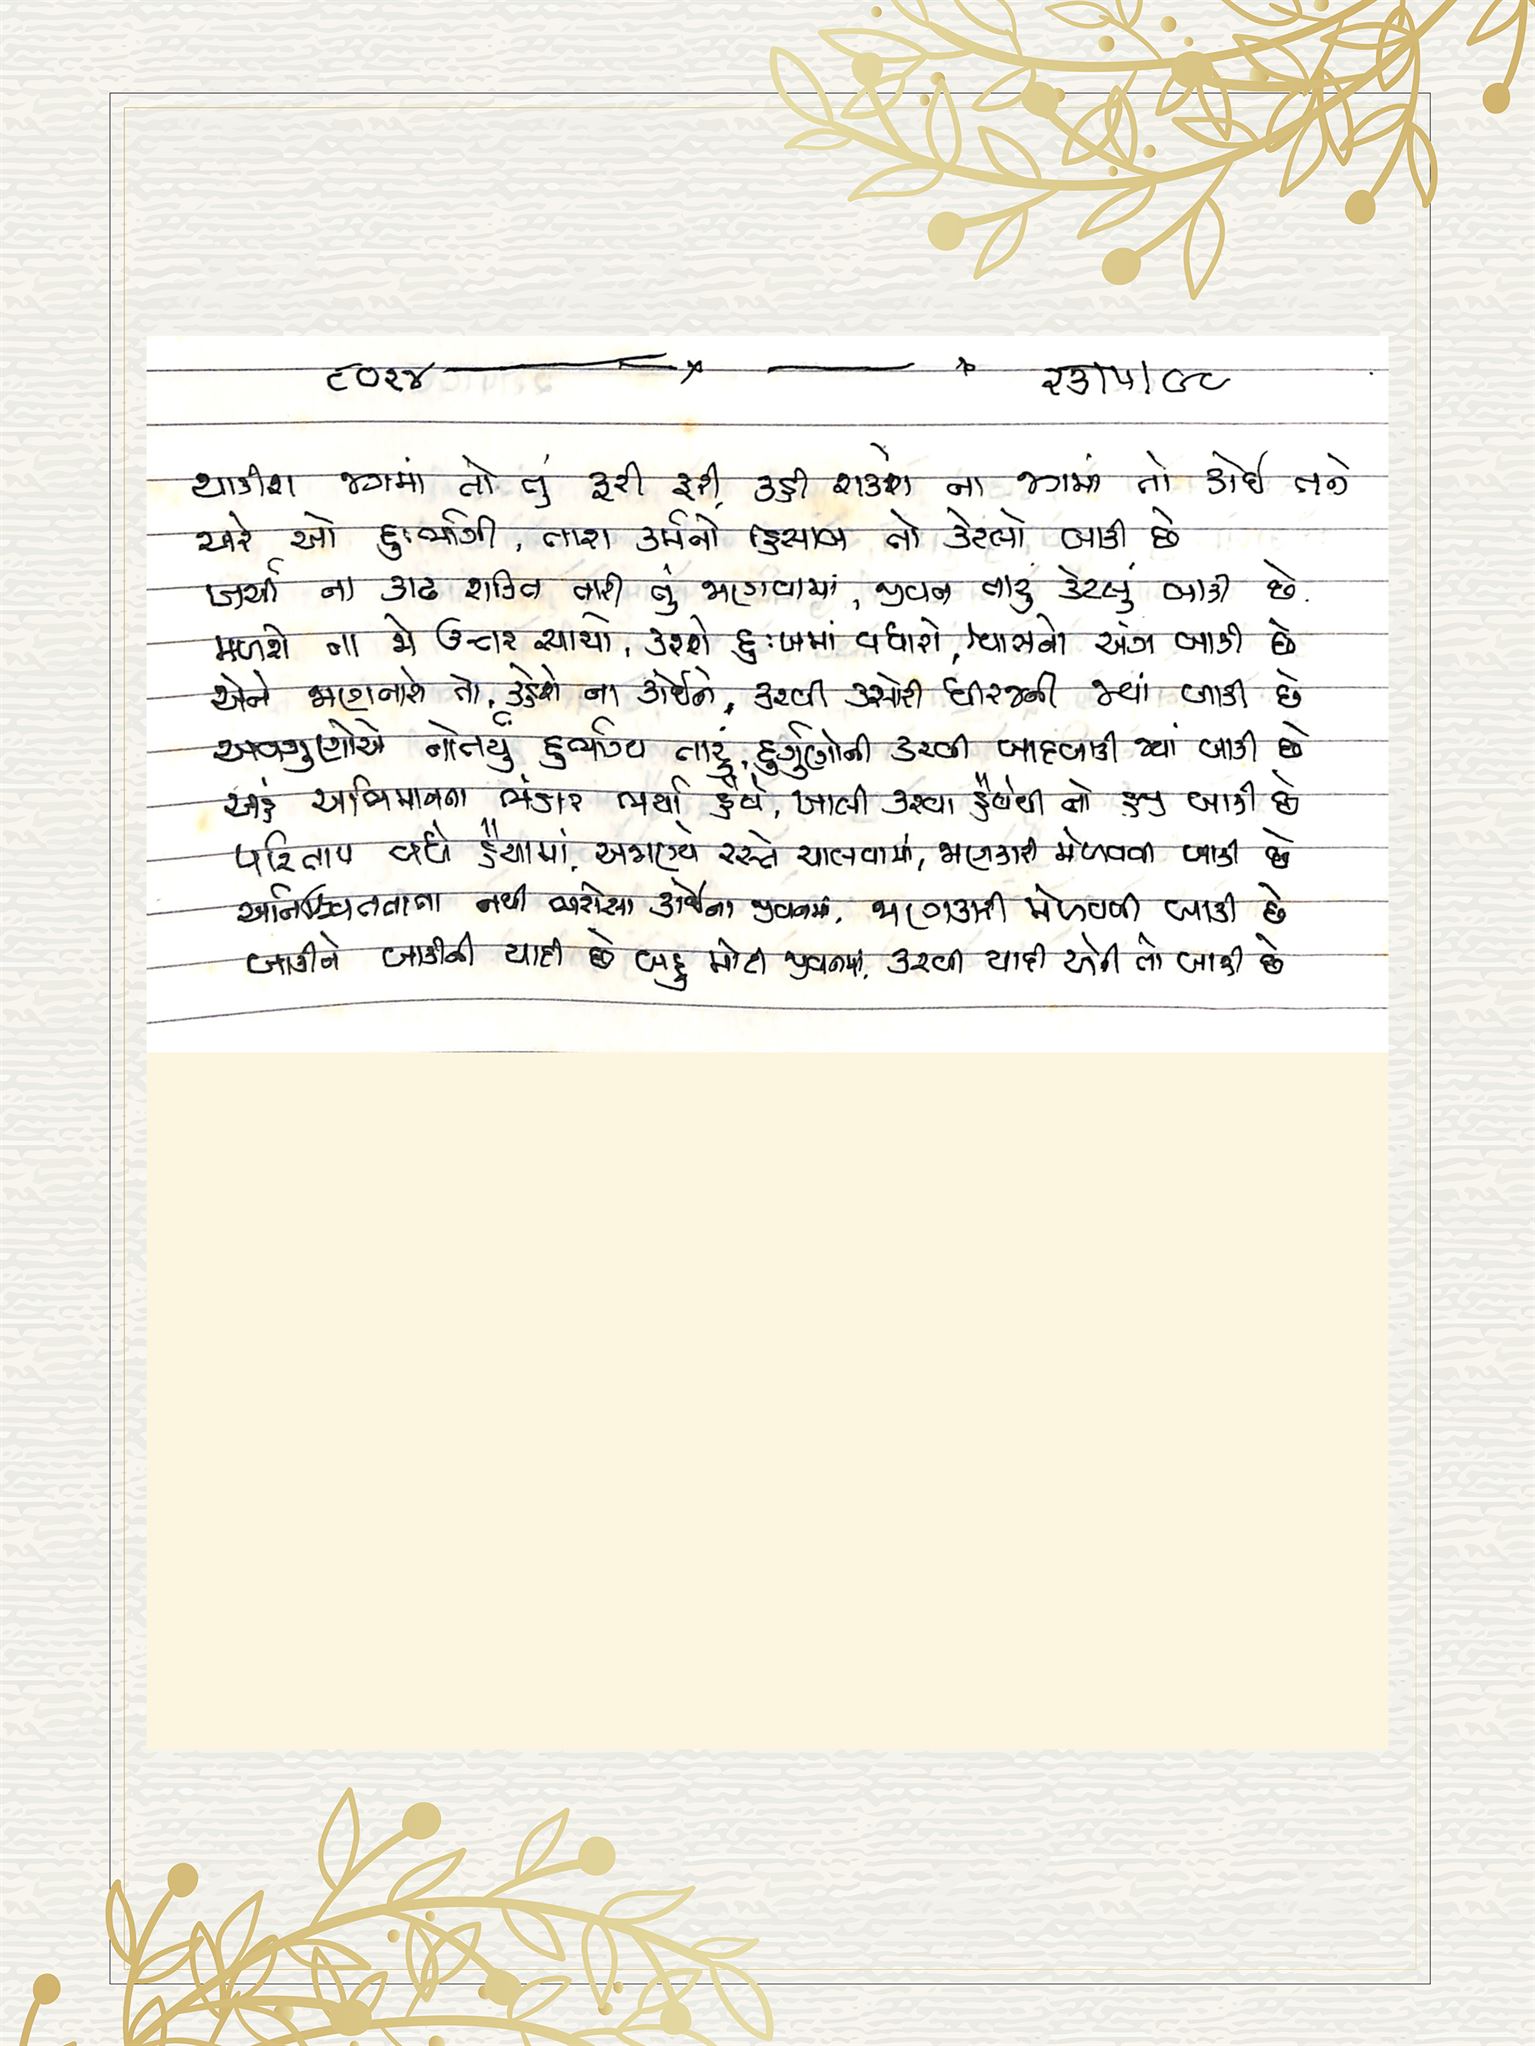 ૯૦૨૪ ૨૩/૫/૦૮
થાકીશ જગમાં તો તું ફરી ફરી, કહી શકશે ના જગમાં તો કોઈ તને
અરે ઓ દુઃર્ભાગી, તારા કર્મનો હિસાબ તો કેટલો બાકી છે
ખર્ચી ના કાઢ શક્તિ તારી તું જાણવામાં, જીવન તારું કેટલું બાકી છે.
મળશે ના જો ઉત્તર સાચો, કરશે દુઃખમાં વધારો, શ્વાસનો અંત બાકી છે
એને જાણનારો તો, કહેશે ના કોઈને, કરવી કસોટી ધીરજની જ્યાં બાકી છે
અવગુણોએ નોતર્યું દુર્ભાગ્ય તારું, દુર્ગુણોની કરવી બાદબાકી જ્યાં બાકી છે
અહં અભિમાનના ભંડાર ભર્યા હૈયે, ખાલી કરવા હૈયેથી તો હજી બાકી છે
પરિતાપ વધે હૈયામાં, અજાણ્યે રસ્તે ચાલવામાં, જાણકારી મેળવવી બાકી છે
અનિશ્ચિતતાના નથી ભરોસા કોઈના જીવનમાં, જાણકારી મેળવવી બાકી છે
બાકીને બાકીની યાદી છે બહુ મોટી જીવનમાં, કરવી યાદી એની તો બાકી છે